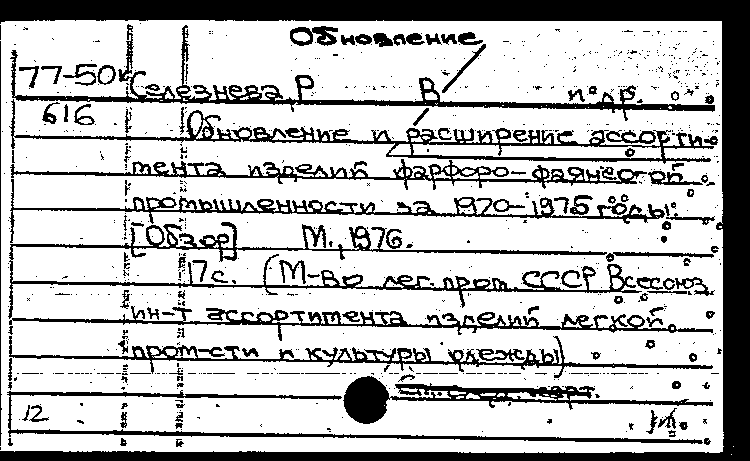 Обновление
77-50к Селезнева, Р В и др.
616 Обновление и расширение ассорти-
мента изделий фарфоро-фаянсовой
промышленности за 1970-1975 годы.
[Обзор] М., 1976.
17с. (М-во лег. пром. СССР Всесоюз.
ин-т ассортимента изделий легкой
пром-сти и культуры одежды)
См. след. карт.
12